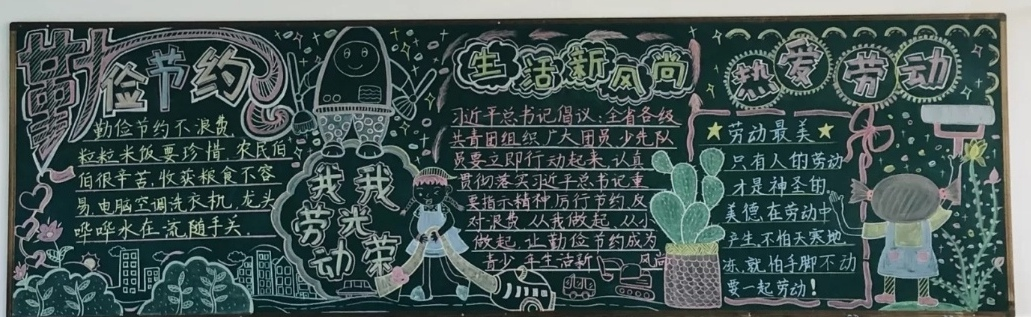 勤俭节约
勤俭节约不浪费
粒粒米饭要珍惜.农民伯
伯很辛苦.收获粮食不容
易.电脑空调洗衣机.龙头
哗哗水在流随手关.
我劳动
我光荣
生活新风尚
习近平总书记倡议:全省各级
共青团组织广大团员少先队
员要立即行动起来.认真
贯彻落实习近平总书记重
要指示精神厉行节约.反
对浪费.从我做起.从小
做起.让勤俭节约成为
青少年生活新风尚
热爱劳动
★劳动最美★
只有人的劳动
才是神圣的
美德.在劳动中
产生.不怕天寒地
冻.就怕手脚不动
要一起劳动!